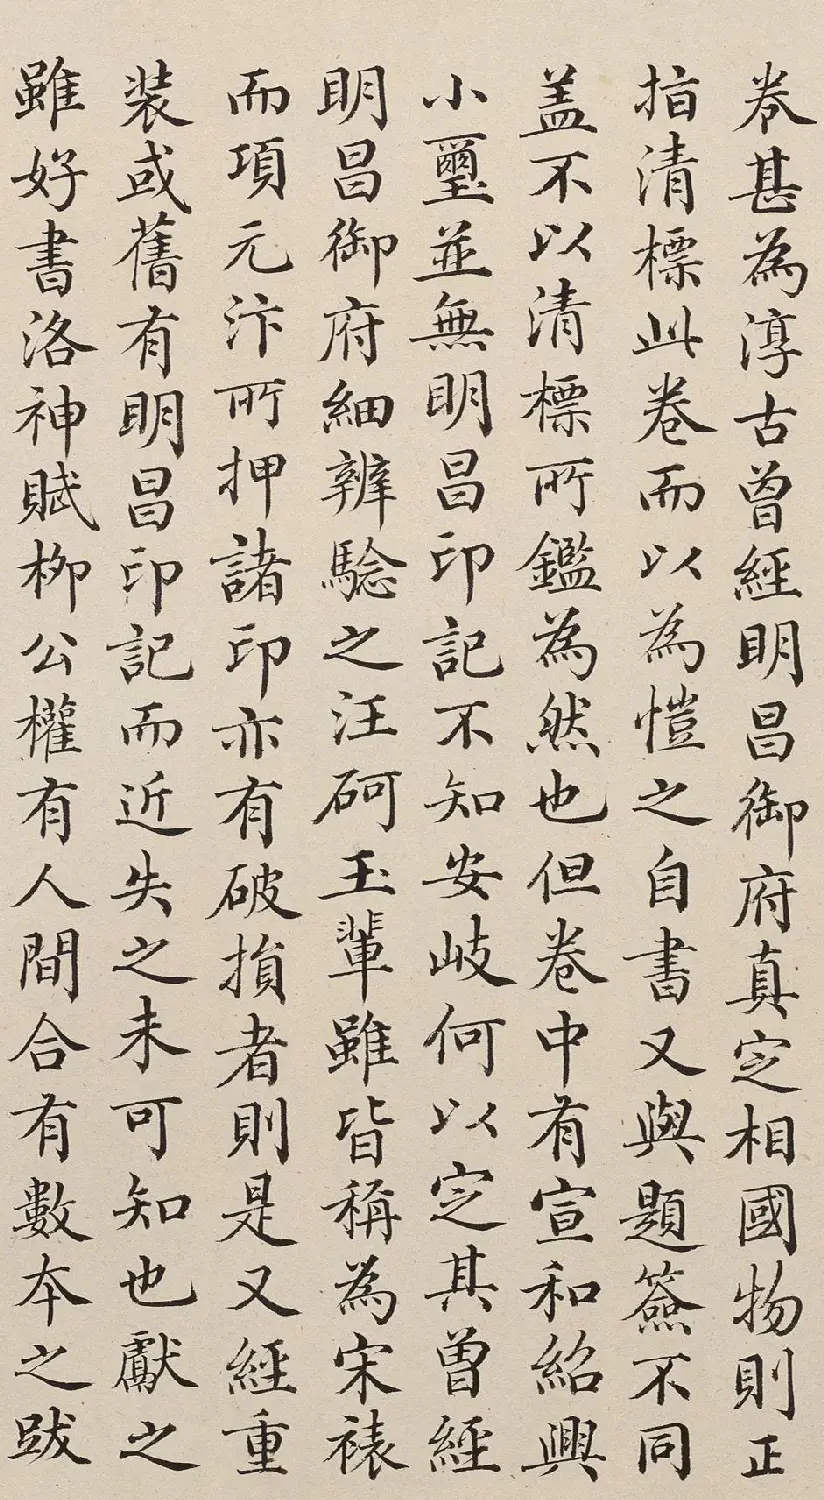 卷甚為淳古曾經明昌御府真定相國物則正
指清標此卷而以為愷之自書又與題簽不同
盖不以清標所鑑為然也但卷中有宣和紹興
小璽並無明昌印記不知安岐何以定其曾經
明昌御府細辨驗之汪砢玉輩雖皆稱為宋裱
而項元汴所押諸印亦有破損者則是又經重
装或舊有明昌印記而近失之未可知也獻之
雖好書洛神賦柳公權有人間合有數本之跋